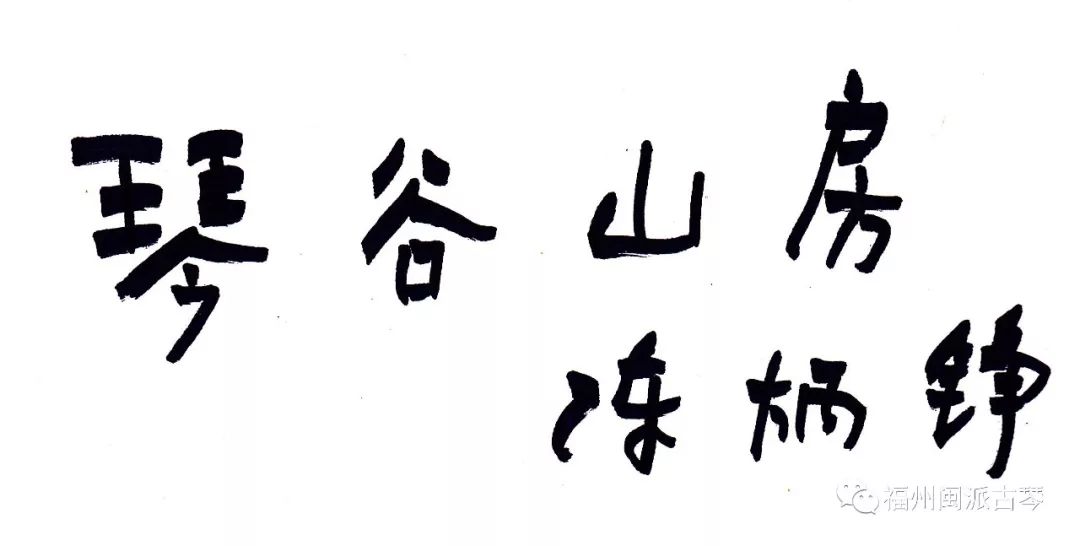 琴谷山房
陈炳铮
福州闽派古琴